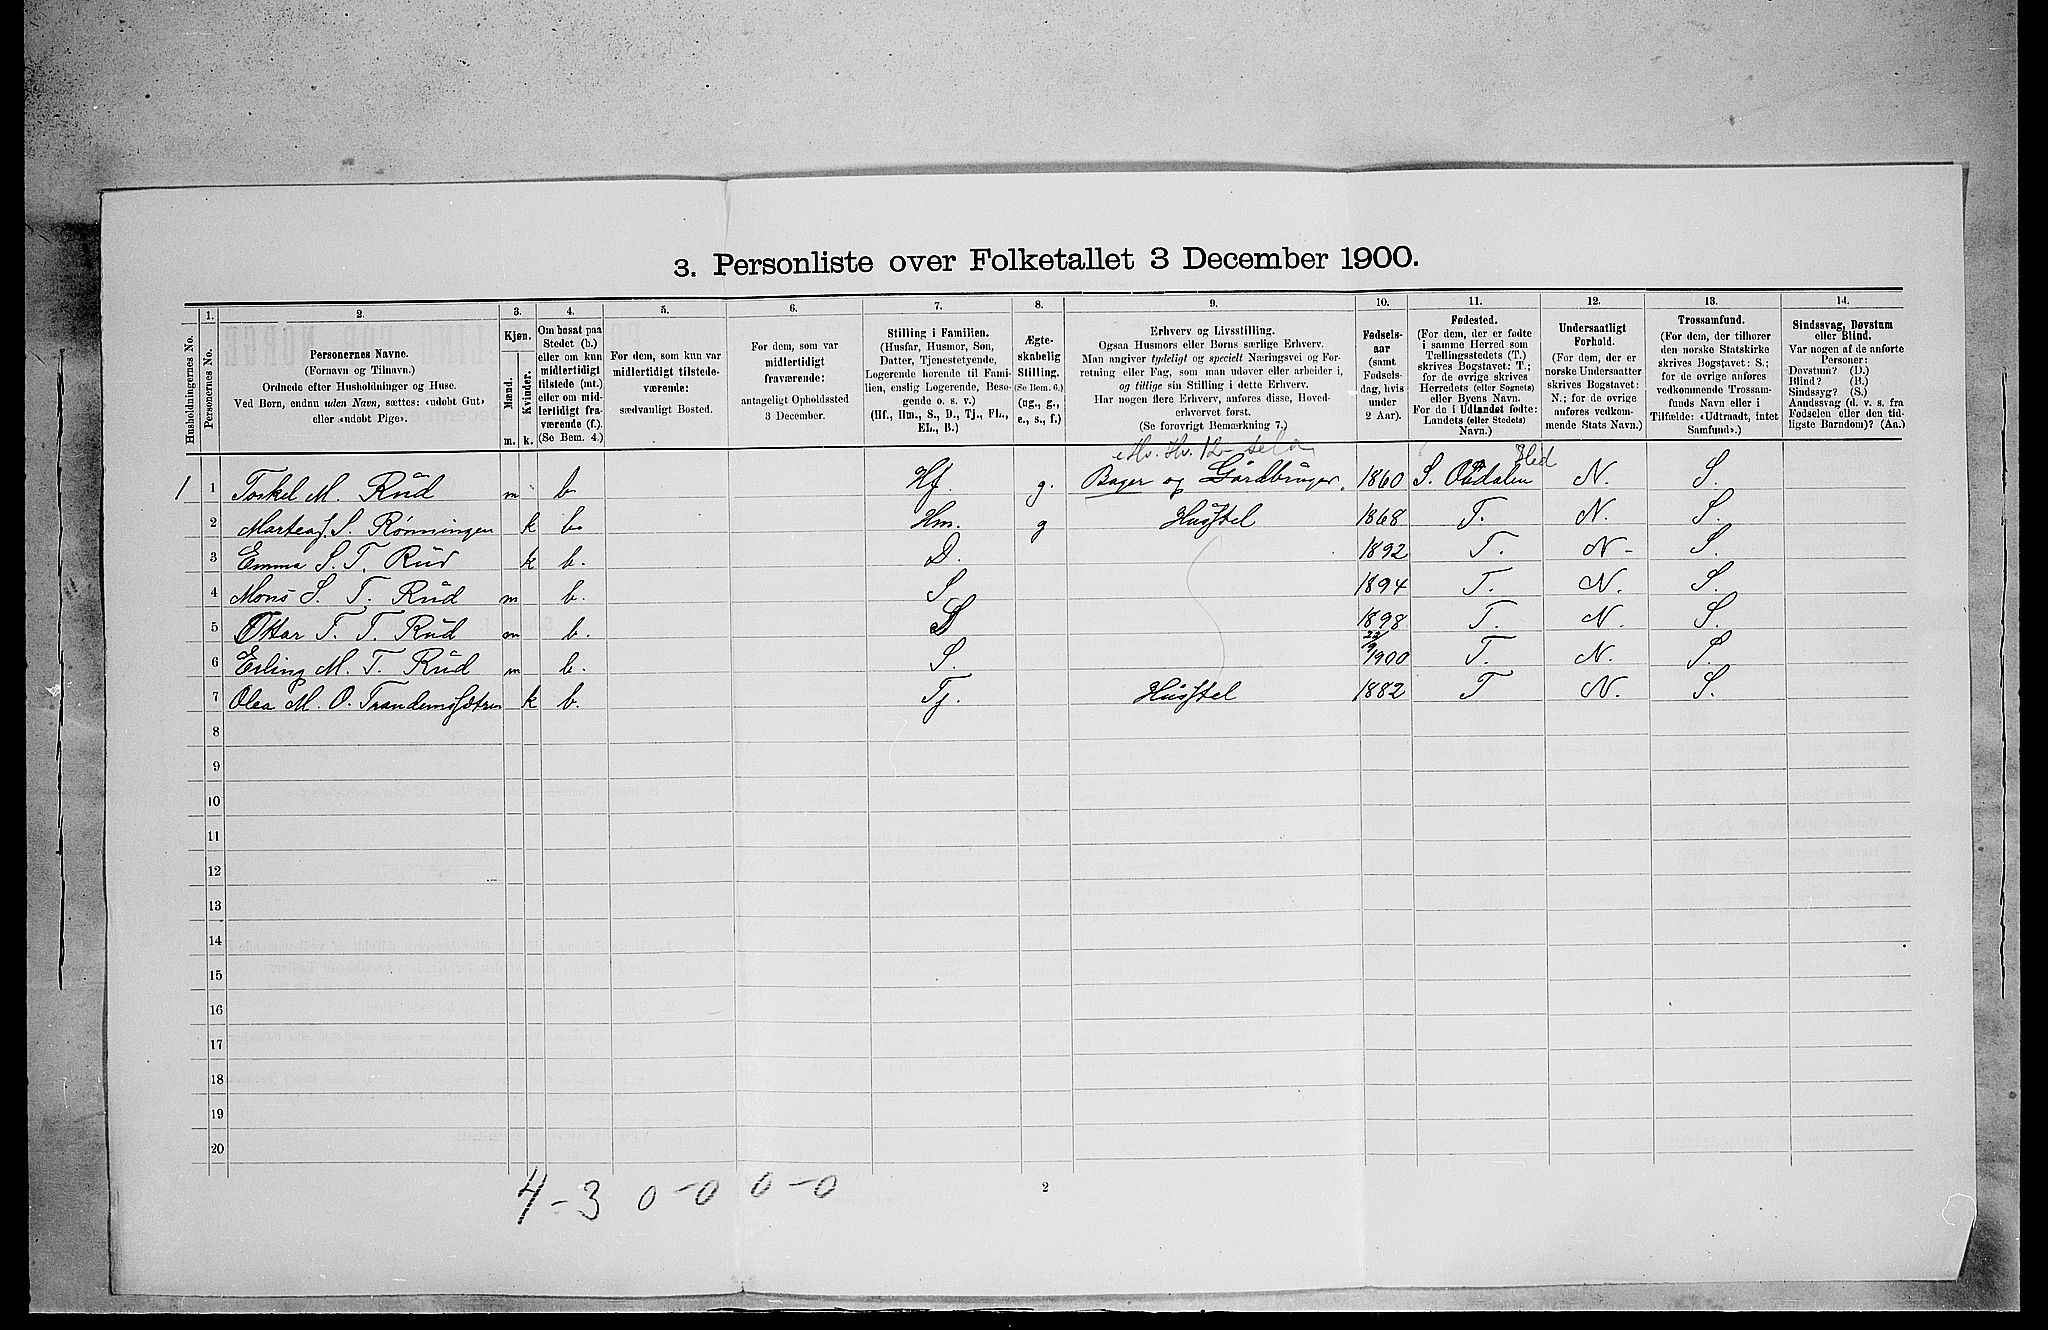 3. Personliste over Folketallet 3 December 1900.
Husholdningernes No.
1.
Personernes No.
2.
Personernes Navne.
(Fornavn og Tilnavn.)
Ordnede efter Husholdninger og Huse.
Ved Børn, endnu uden Navn, sættes: «udøbt Gut»
eller «udøbt Pige».
3.
Kjøn.
Mænd.
Kvinder.
m. k.
4.
Om bosat paa
Stedet (b.)
eller om kun
midlertidigt
tilstede (mt.)
eller om mid-
lertidigt fra-
værende (f.)
(Se Bem. 4.)
5.
For dem, som kun var
midlertidigt tilstede-
værende:
sædvanligt Bosted.
6.
For dem, som var
midlertidigt
fraværende:
antageligt Opholdssted
3 December.
7.
Stilling i Familien.
(Husfar, Husmor, Søn,
Datter, Tjenestetyende,
Logerende hørende til Fami-
lien, enslig Logerende, Besø-
gende o. s. v.)
(Hf., Hm., S., D., Tj., FL.,
EL., B.)
8.
Ægte-
skabelig
Stilling.
(Se Bem. 6.)
(ug., g.,
e., s., f.)
9.
Erhverv og Livsstilling.
Ogsaa Husmors eller Børns særlige Erhverv.
Man angiver tydeligt og specielt Næringsvei og For-
retning eller Fag, som man udøver eller arbeider i,
og tillige sin Stilling i dette Erhverv.
Har nogen flere Erhverv, anføres disse, Hoved-
erhvervet først.
(Se forøvrigt Bemærkning 7.)
10.
Fødsels-
aar
(samt
Fødsels-
dag, hvis
under
2 Aar).
11.
Fødested.
(For dem, der er fødte
i samme Herred som
Tællingsstedets (T.)
skrives Bogstavet: T.;
for de øvrige skrives
Herredets (eller Sognets)
eller Byens Navn.
For de i Udlandet fødte:
Landets (eller Stedets)
Navn.)
12.
Undersaatligt
Forhold.
(For dem, der er
norske Undersaatter
skrives Bogstavet:
N.; for de øvrige
anføres vedkom-
mende Stats Navn.)
13.
Trossamfund.
(For dem, der tilhører
den norske Statskirke
skrives Bogstavet: S.;
for de øvrige anføres
vedkommende Trossam-
funds Navn eller i
Tilfælde: «Udtraadt, intet
Samfund».)
14.
Sindssvag, Døvstum
eller Blind.
Var nogen af de anførte
Personer:
Døvstum? (D.)
Blind? (B.)
Sindssyg? (S.)
Aandssvag (d. v. s. fra
Fødselen eller den tid-
ligste Barndom)? (Aa.)
Hed
1 1 Torkel M. Rud m b. Hf. g. Bager og Gårdbruger. 1860 S. Oudalen N. S.
2 S. Rønningen k b. Hm. g Husstel 1868 T. N. S.
3 Emma S. T. Rud k b. D. 1892 T. N- S.
4 Mons S. T. Rud m b. S. 1894 T. N. S.
5 Ottar T. T. Rud m b. 1898 T. N. S.
22/9
6 Erling M. T. Rud m b. S. 1900 T. N. S.
7 Olea M. O. k b. Tj. Husstel 1882 T N. S.
8
9
10
11
12
13
14
15
16
17
18
19
20
4-3 0-0 0-0
2